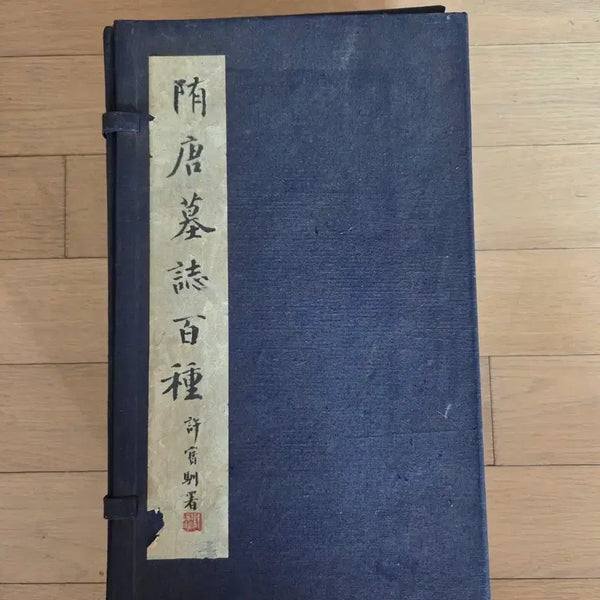 隋唐墓誌百種
許寶馴署